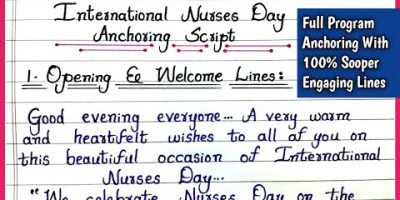 International Nurses Day
Anchoring Script
Full Program
Anchoring With
100% Sooper
Engaging Lines
1. Opening & Welcome Lines:
Good evening everyone... A very warm
and heartfelt wishes to all of you on
this beautiful occasion of International
Nurses Day...
"We celebrate Nurses Day on the